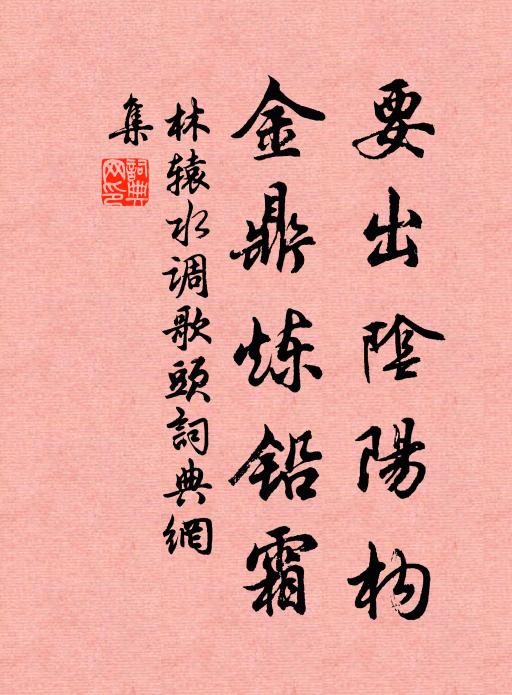 要出陰陽构
金鼎炼铅霜
林辕水调歌頭詞典網
集
詞典
网印